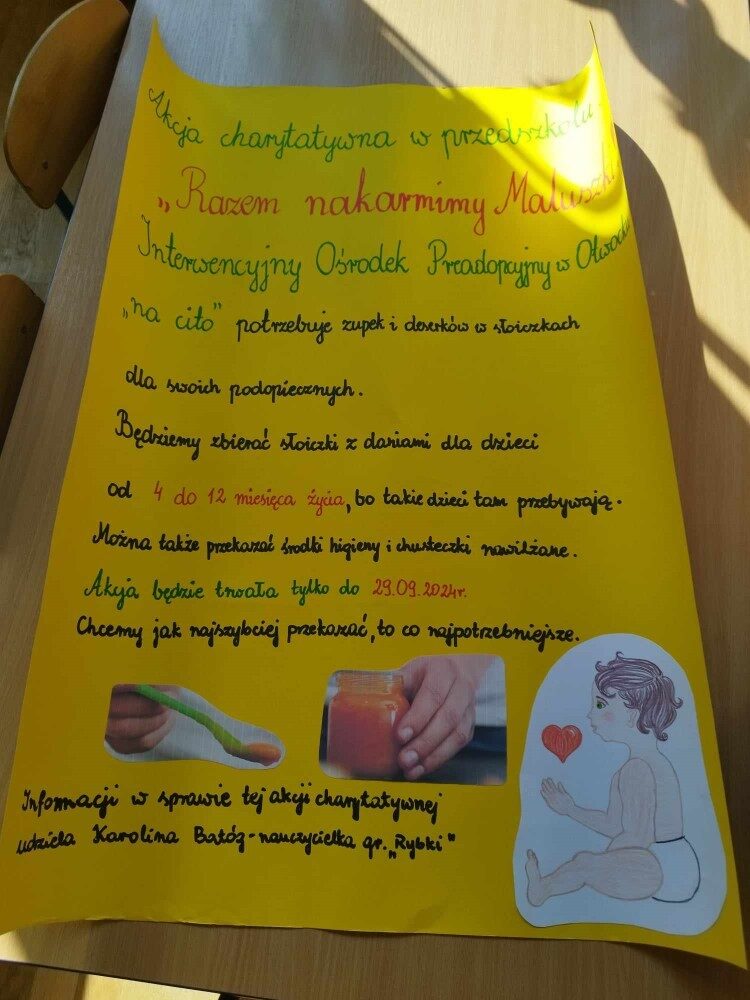 Akcja charytatywna w przedszkolu
„Razem nakarmimy Maluszki
Interwencyjny Ośrodek Preadopcyjny w Otwocku
„na cito" potrzebuje zupek i deserków w słoiczkach
dla swoich podopiecznych.
Będziemy zbierać słoiczki z daniami dla dzieci
od 4 do 12 miesiąca życia, bo takie dzieci tam przebywają.
Można także przekazać środki higieny i chusteczki nawilżane.
Akcja będzie trwała tylko do 29.09.2024r.
Chcemy jak najszybciej przekazać, to co najpotrzebniejsze.
Informacji w sprawie tej akcji charytatywnej
udziela Karolina - nauczycielka gr. „Rybki"